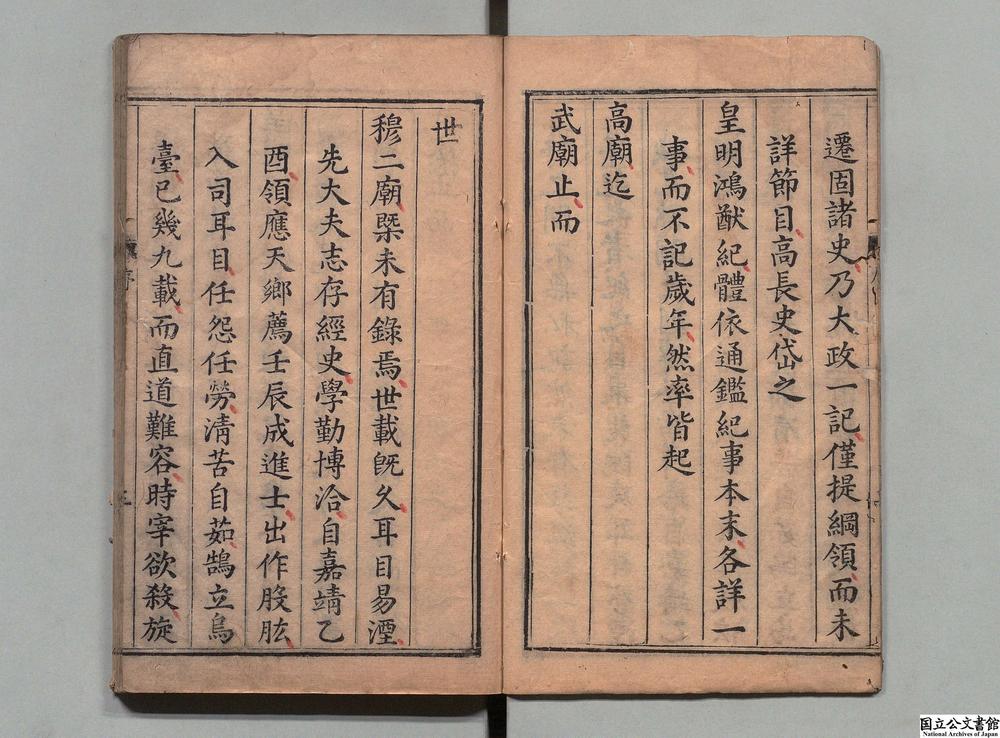 遷固諸史乃大政一記僅提綱領而未
詳節目高長史岱之
皇明鴻猷紀體依通鑑紀事本末各詳一
事而不記歲年然率皆起
高廟迄
武廟止而
世
穆二廟槩未有錄焉世載旣久耳目易湮
先大夫志存經史學勤博洽自嘉靖乙
酉領應天鄉薦壬辰成進士出作股肱
入司耳目任怨任勞淸苦自茹鵠立烏
臺已幾九載而直道難容時宰欲殺旋
序
国立公文書館
National Archives of Japan